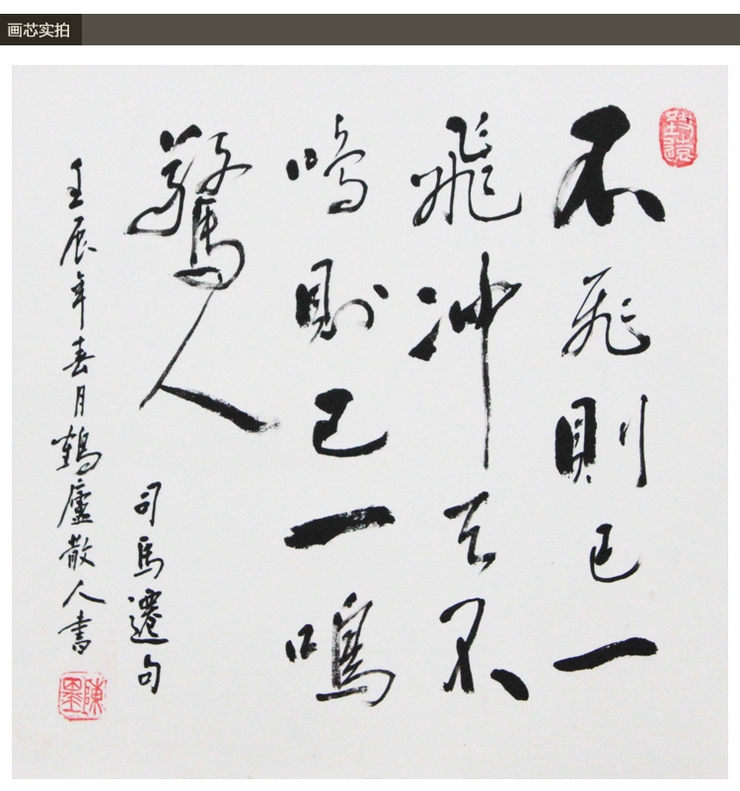 画芯实拍
不飛則已一
飛冲天不
鳴則已一鳴
驚人
司馬遷句
壬辰年春月鶴廬散人書
陳墨